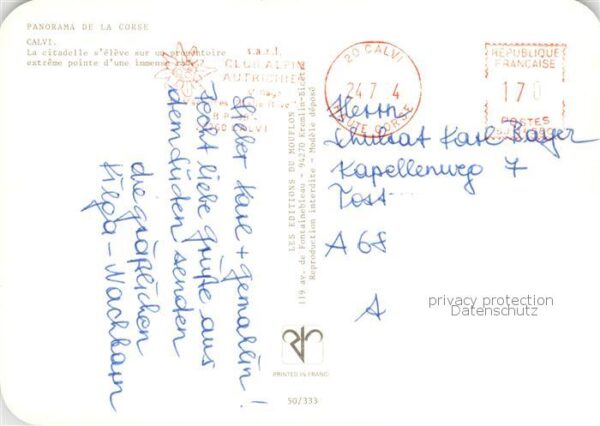 PANORAMA DE LA CORSE
CALVI.
La citadelle s'élève sur un promontoire
extrême pointe d'une immense
s.a.r.l.
CLUB ALPIN
AUTRICHIEN
Village
B.P.
CALVI
20 CALVI
24 7 4
HAUTE CORSE
RÉPUBLIQUE
FRANÇAISE
170
POSTES
Lieber Karl + gemahlin!
Recht liebe grüße aus
dem Süden senden
die gräßlichen
Kilga-Nachbarn
LES EDITIONS DU MOUFLON
119 av. de Fontainebleau - 94270 Kremlin-Bicêtre
Reproduction interdite - Modèle déposé
Herrn
Schulrat Karl Bayer
Kapellenweg 7
Post
A 68
A
privacy protection
Datenschutz
PRINTED IN FRANCE
50/333